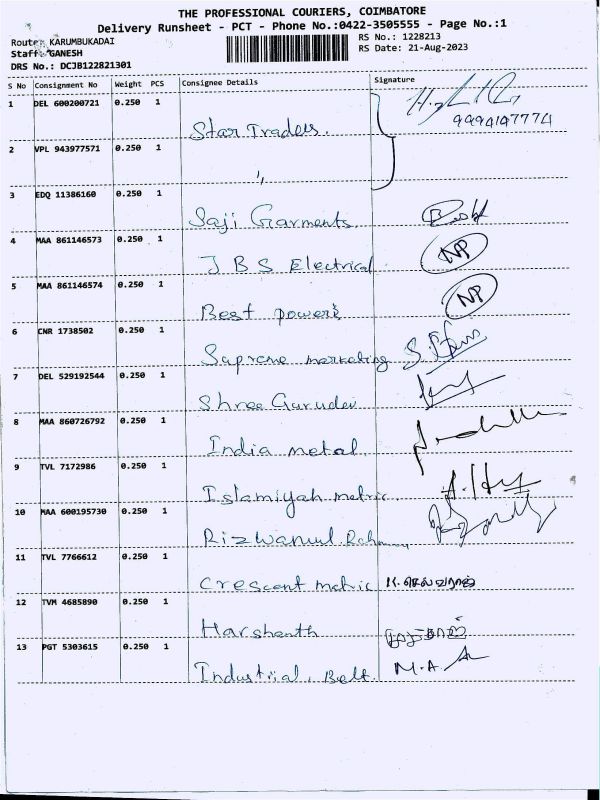 THE PROFESSIONAL COURIERS, COIMBATORE
Delivery Runsheet - PCT - Phone No.:0422-3505555 - Page No.:1
Route: KARUMBUKADAI
RS No.: 1228213
Staff: GANESH
RS Date: 21-Aug-2023
DRS No.: DCJB122821301
S No Consignment No Weight PCS Consignee Details Signature
1 DEL 600200721 0.250 1 Star Traders.
9994197774
2 VPL 943977571 0.250 1 ,,
3 EDQ 11386160 0.250 1 Saji Garments
4 MAA 861146573 0.250 1 J B S Electrical NP
5 MAA 861146574 0.250 1 Best powers NP
6 CNR 1738502 0.250 1 Supreme marketing
7 DEL 529192544 0.250 1 Shree Gurudev
8 MAA 860726792 0.250 1 India metal
9 TVL 7172986 0.250 1 Islamiyah matric.
10 MAA 600195730 0.250 1 Rizwanul
11 TVL 7766612 0.250 1 Crescent matric
12 TVM 4685890 0.250 1 Harshanth
13 PGT 5303615 0.250 1 Industrial. Belt. M.A